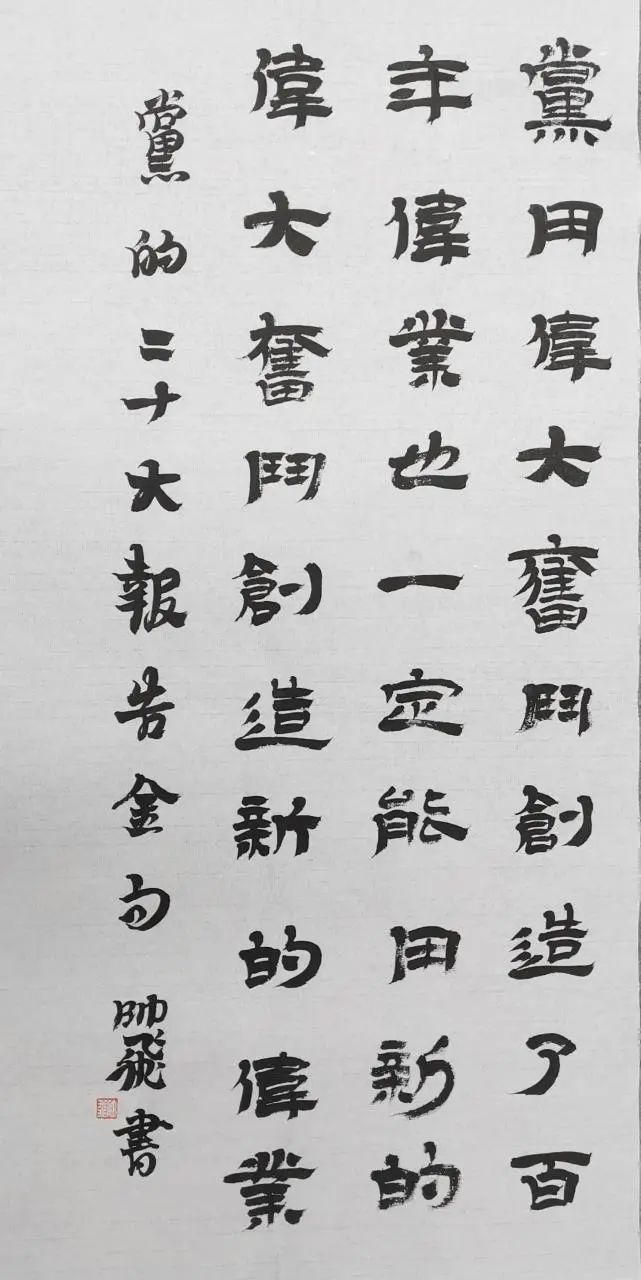 黨用偉大奮鬥創造了百
年偉業也一定能用新的
偉大奮鬥創造新的偉業
黨的二十大報告金句 帥飛書